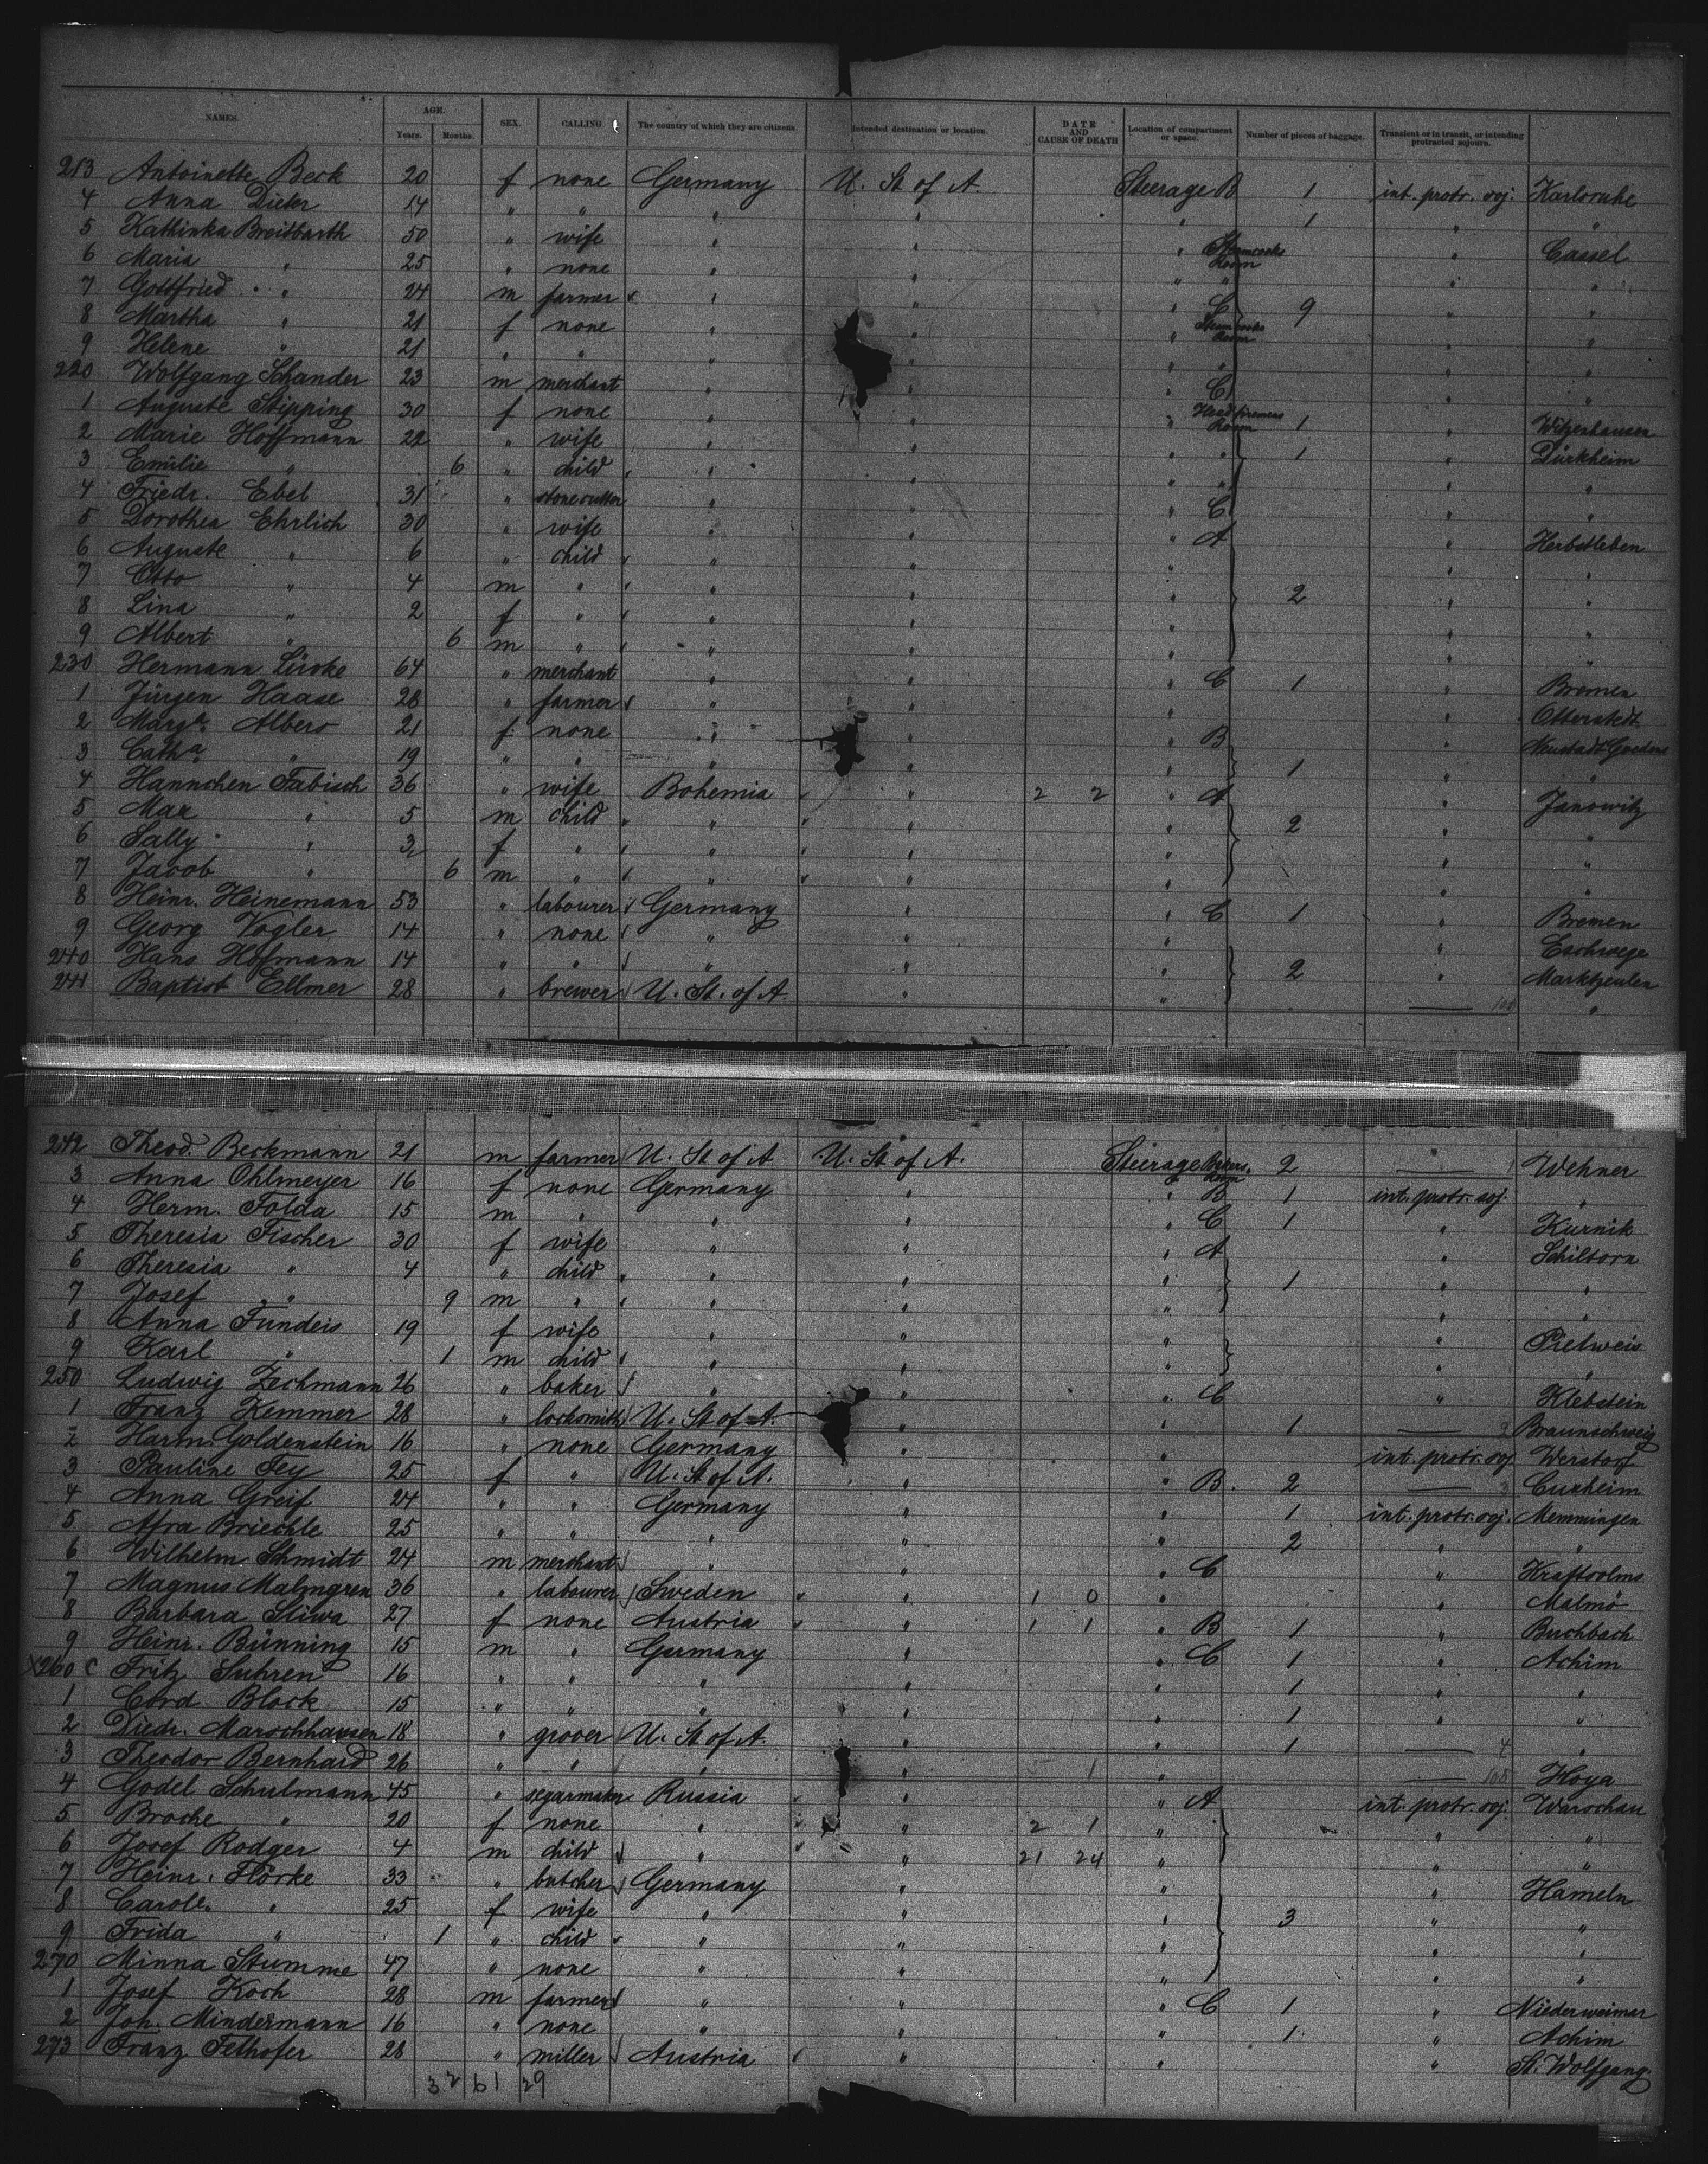 NAMES. AGE. SEX. CALLING. The country of which they are citizens. Intended destination or location. DATE AND CAUSE OF DEATH Location of compartment or space. Number of pieces of baggage. Transient or in transit, or intending protracted sojourn.
Years. Months.
213 Antoinette Beck 20 f none Germany U. St of A. Steerage B 1 int. protr. soj. Karlsruhe
4 Anna Dieter 14 " " " " " 1 " "
5 Kathinka Breitbarth 50 " wife " " " Steamcooks Room " Cassel
6 Maria " 25 " none " " " " " "
7 Gottfried " 24 m farmer " " " C 9 " "
8 Martha " 21 f none " " " Steamcooks Room " "
9 Helene " 21 " " " " " " " "
220 Wolfgang Schander 23 m merchant " " " C " "
1 Auguste Stipping 30 f none " " " Headfiremens Room 1 " Witzenhausen
2 Marie Hoffmann 22 " wife " " " " 1 " Dürkheim
3 Emilie " 6 " child " " " " " "
4 Friedr. Ebel 31 " stonecutter " " " C " "
5 Dorothea Ehrlich 30 " wife " " " A " Herbstleben
6 Auguste " 6 " child " " " " "
7 Otto " 4 m " " " " 2 " "
8 Lina " 2 f " " " " " "
9 Albert " 6 m " " " " " "
230 Hermann Lüroke 64 " merchant " " " C 1 " Bremen
1 Jürgen Haase 28 " farmer " " " " Otterstedt
2 Marga. Albers 21 f none " " " B "
3 Catha. " 19 " " " " " 1 " "
4 Hannchen Fabisch 36 " wife Bohemia " 2 2 " A " Janowitz
5 Max " 5 m child " " " 2 " "
6 Sally " 3 f " " " " " "
7 Jacob " 6 m " " " " " "
8 Heinr. Heinemann 53 " labourer Germany " " C 1 " Bremen
9 Georg Vogler 14 " none " " " " Eschwege
240 Hans Hofmann 14 " " " " " 2 " Marktzeulen
241 Baptist Ellmer 28 " brewer U. St. of A. " " "
242 Theod. Beckmann 21 m farmer U. St of A U. St of A. Steerage Bakers Room 2 1 Wehner
3 Anna Ohlmeyer 16 f none Germany " " B 1 int. protr. soj. "
4 Herm. Folda 15 m " " " " C 1 " Kurnik
5 Theresia Fischer 30 f wife " " " A " Schiltorn
6 Theresia " 4 " child " " " 1 " "
7 Josef " 9 m " " " " " "
8 Anna Fundeis 19 f wife " " " " Pietweis
9 Karl " 1 m child " " " " "
250 Ludwig Zechmann 26 " baker " " " C " Klebstein
1 Franz Kemmer 28 " locksmith U. St of A. " " 1 2 Braunschweig
2 Harm. Goldenstein 16 " none Germany " " int. protr. soj. Werstorf
3 Pauline Fey 25 f " U. St of A. " " B. 2 3 Cuxheim
4 Anna Greif 24 " " Germany " " 1 int. protr. soj. Memmingen
5 Afra Briechle 25 " " " " " 2 " "
6 Wilhelm Schmidt 24 m merchant " " " C " Kraftsolms
7 Magnus Malmgren 36 " labourer Sweden " 1 0 " " Malmö
8 Barbara Stiwa 27 f none Austria " 1 1 " B 1 " Buchbach
9 Heinr. Bünning 15 m " Germany " " C 1 " Achim
X260 C Fritz Suhren 16 " " " " " 1 " "
1 Cord Block 15 " " " " " 1 " "
2 Diedr. Marschhausen 18 " grocer U. St of A. " " 1 4 "
3 Theodor Bernhard 26 " " " " 5 1 " 105 Hoya
4 Godel Schulmann 45 " segarmaker Russia " " A int. protr. soj. Warschau
5 Broche " 20 f none " " 2 1 " " "
6 Josef Rodger 4 m child " " 21 24 " " "
7 Heinr. Flörke 33 " butcher Germany " " " Hameln
8 Carole. " 25 f wife " " " 3 " "
9 Frida " 1 " child " " " " "
270 Minna Stumme 47 " none " " " " "
1 Josef Koch 28 m farmer " " " C 1 " Niederweimar
2 Joh. Mindermann 16 " none " " " 1 " Achim
273 Franz Felhofer 28 " miller Austria " " " St. Wolfgang
32 61 29